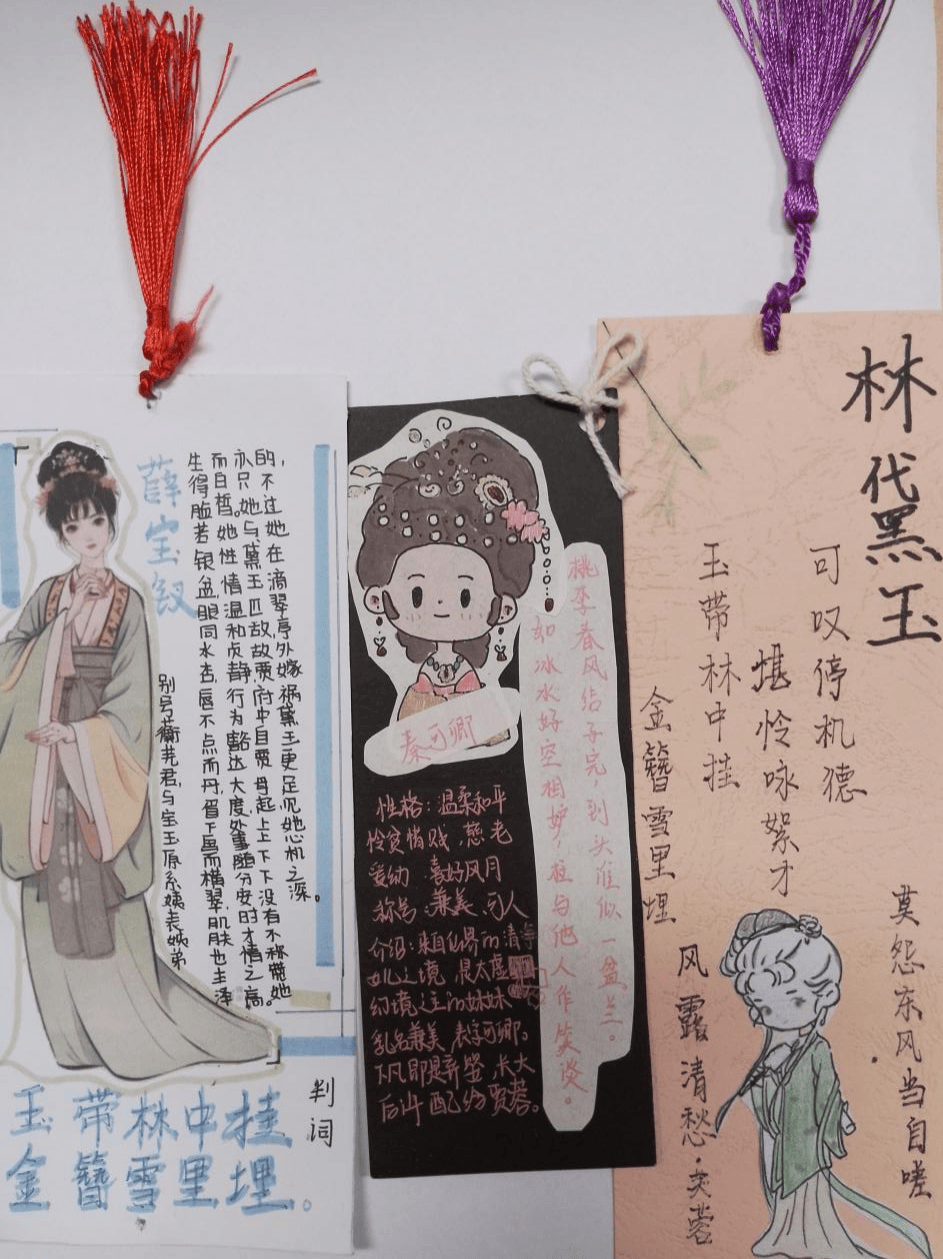 薛宝钗
别号蘅芜君,与宝玉原系姨表姊弟
生得脸若银盆,眼同水杏,唇不点而丹,眉不画而横翠,肌肤也丰泽
而白皙。她性情温和贞静,行为豁达大度,处事随分安时,才情之高,
亦只她与黛玉匹敌,故贾府中自贾母起上上下下没有不称赞她
的,不过她在滴翠亭外嫁祸黛玉更足见她心机之深。
判词
玉带林中挂
金簪雪里埋。
秦可卿
桃李春风结子完,到头谁似一盆兰。
如冰水好空相妒,枉与他人作笑谈。
性格:温柔和平
怜贫惜贱,慈老
爱幼 喜好风月
称号:兼美、可人
介绍:来自仙界的清净
女儿之境 是太虚
幻境之主的妹妹
乳名兼美 表字可卿。
下凡即是弃婴 长大
后许配给贾蓉。
林黛玉
可叹停机德
堪怜咏絮才
玉带林中挂
金簪雪里埋
莫怨东风当自嗟
风露清愁·芙蓉